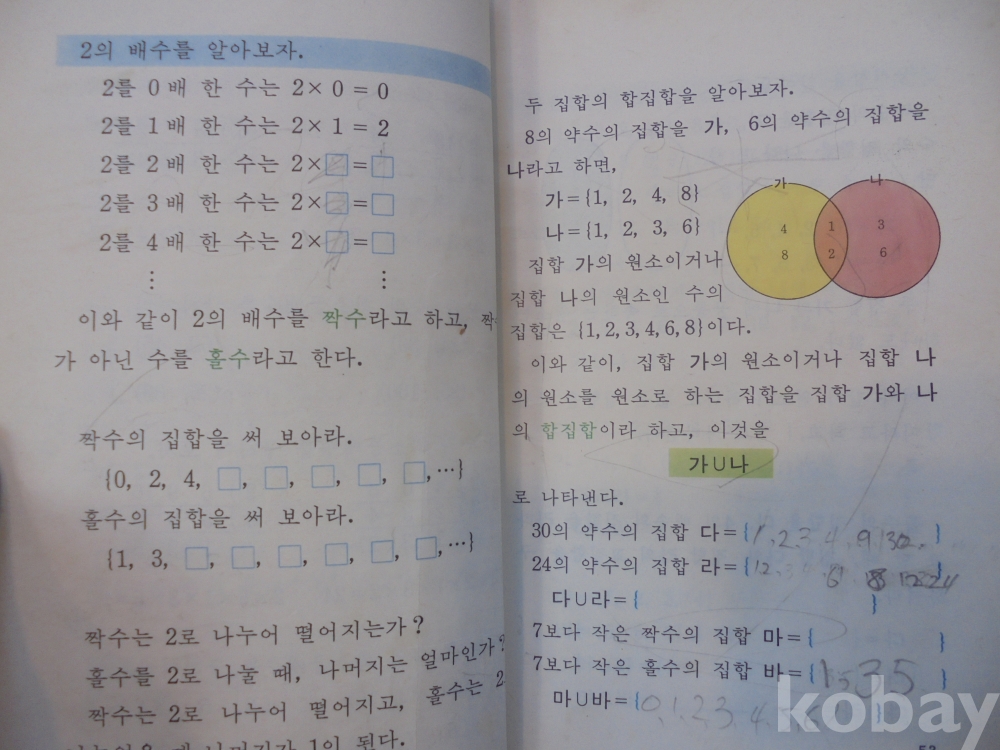 2의 배수를 알아보자.
2를 0배 한 수는 2×0=0
2를 1배 한 수는 2×1=2
2를 2배 한 수는 2×□=□
2를 3배 한 수는 2×□=□
2를 4배 한 수는 2×□=□
⋮ ⋮
이와 같이 2의 배수를 짝수라고 하고, 짝
가 아닌 수를 홀수라고 한다.
짝수의 집합을 써 보아라.
{0, 2, 4, □, □, □, □, □, ⋯}
홀수의 집합을 써 보아라.
{1, 3, □, □, □, □, □, □, ⋯}
짝수는 2로 나누어 떨어지는가?
홀수를 2로 나눌 때, 나머지는 얼마인가?
짝수는 2로 나누어 떨어지고, 홀수는 2
나머지가 1이 된다.
두 집합의 합집합을 알아보자.
8의 약수의 집합을 가, 6의 약수의 집합을
나라고 하면,
가={1, 2, 4, 8}
나={1, 2, 3, 6}
집합 가의 원소이거나
집합 나의 원소인 수의
집합은 {1, 2, 3, 4, 6, 8}이다.
가 나
4 1 3
8 2 6
이와 같이, 집합 가의 원소이거나 집합 나
의 원소를 원소로 하는 집합을 집합 가와 나
의 합집합이라 하고, 이것을
가∪나
로 나타낸다.
30의 약수의 집합 다={1, 2, 3 }
24의 약수의 집합 라={ }
다∪라={ }
7보다 작은 짝수의 집합 마={ }
7보다 작은 홀수의 집합 바={1 3 5 }
마∪바={0, 1, 2, 3, 4 }
kobay